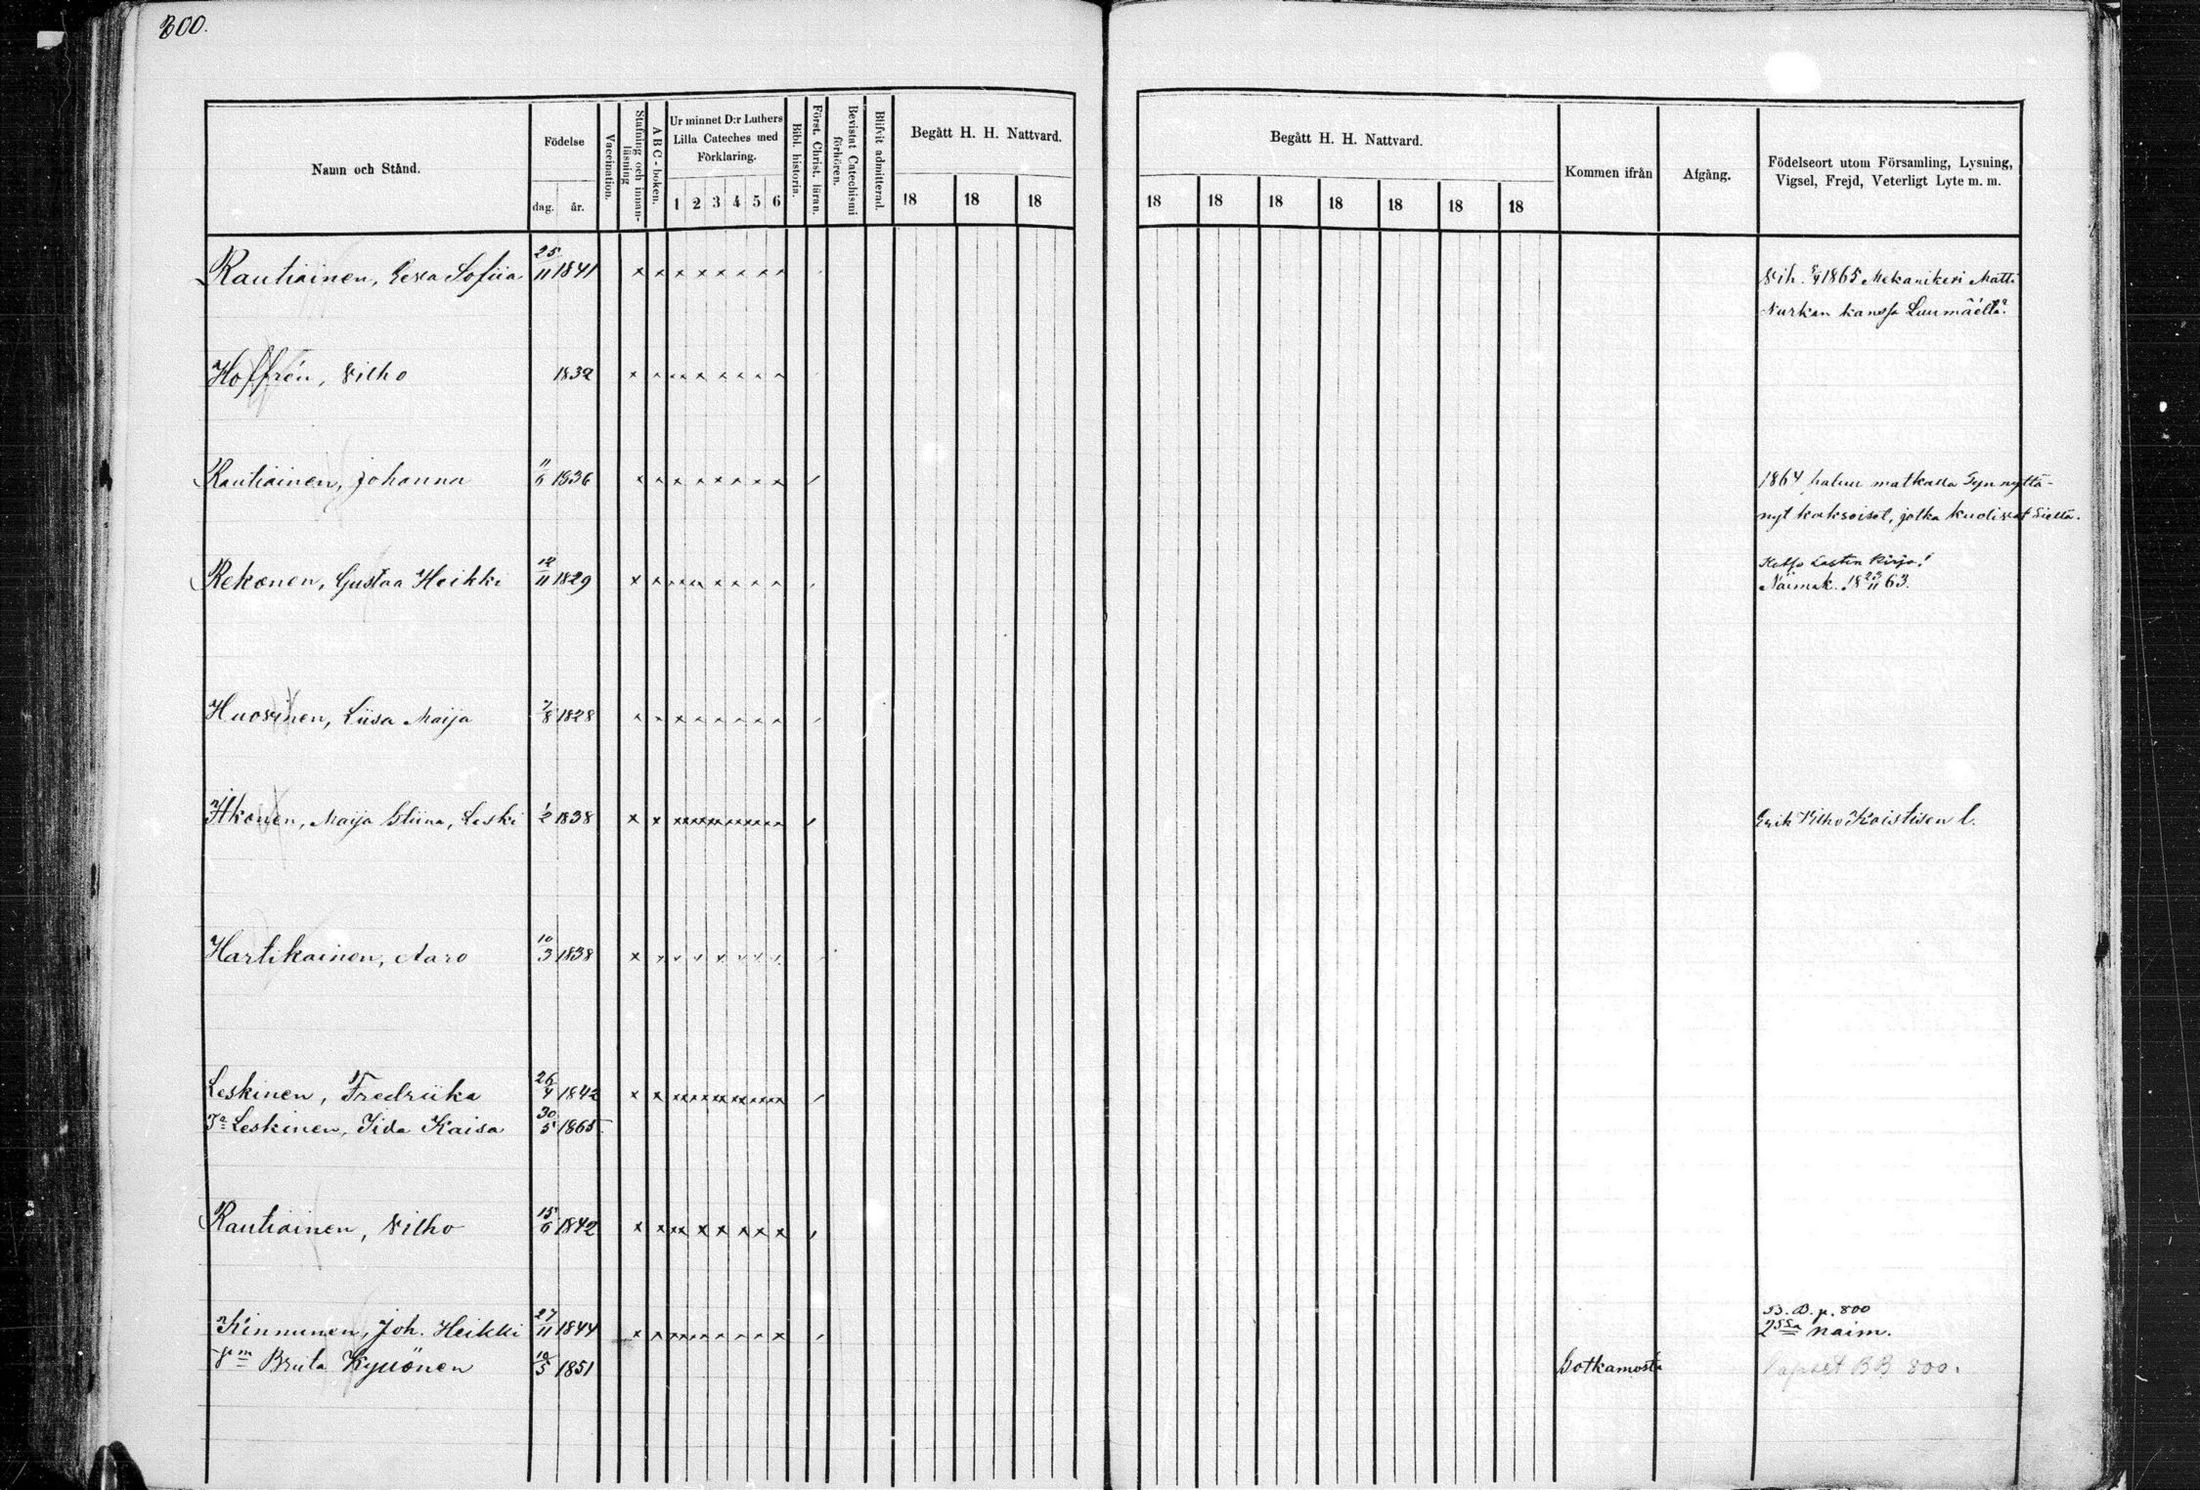 800.
Namn och Stånd.
Födelse
dag. år.
Vaccination.
Stafning och innan-läsning
ABC-boken.
Ur minnet D:r Luthers Lilla Cateches med Förklaring.
1 2 3 4 5 6
Bibl. historia.
Först. Christ. läran.
Bevistat Catechismi förhören.
Blifvit admitterad.
Begått H. H. Nattvard.
18 18 18
Begått H. H. Nattvard.
18 18 18 18 18 18 18
Kommen ifrån
Afgång.
Födelseort utom Församling, Lysning, Vigsel, Frejd, Veterligt Lyte m. m.
Rautiainen, Eeva Sofiia 25/11 1841 Vih. 1865 Mekanikeri Matti
Nurkan kanssa Luumäeltä.
Hoffrén, Vilho 1832
Rautiainen, Johanna 11/6 1836 1864 paluu matkalla synnyttä-
nyt kaksoiset, jotka kuolivat sieltä.
Katso Lasten Kirja!
Rekonen, Gustaa Heikki 12/11 1829 Naimak. 18 23/11 63.
Huovinen, Liisa Maija 7/8 1828
Itkonen, Maija Stiina, Leski 1/2 1838 Erik Vilho Koistisen l.
Hartikainen, Aaro 10/3 1838
Leskinen, Fredriika 26/4 1842
Tr Leskinen, Iida Kaisa 30/5 1865
Rautiainen, Vilho 15/6 1842
B. B. p. 800
Kinnunen, Joh. Heikki 27/11 1844 2ssa naim.
Vm Briita Kyllönen 10/5 1851 Sotkamosta Lapset BB 800.